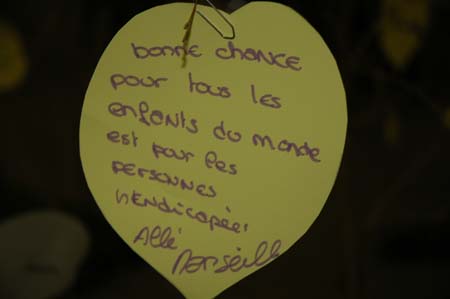 bonne chance
pour tous les
enfants du monde
est pour les
personnes
hendicapéer
Allé
Marseille